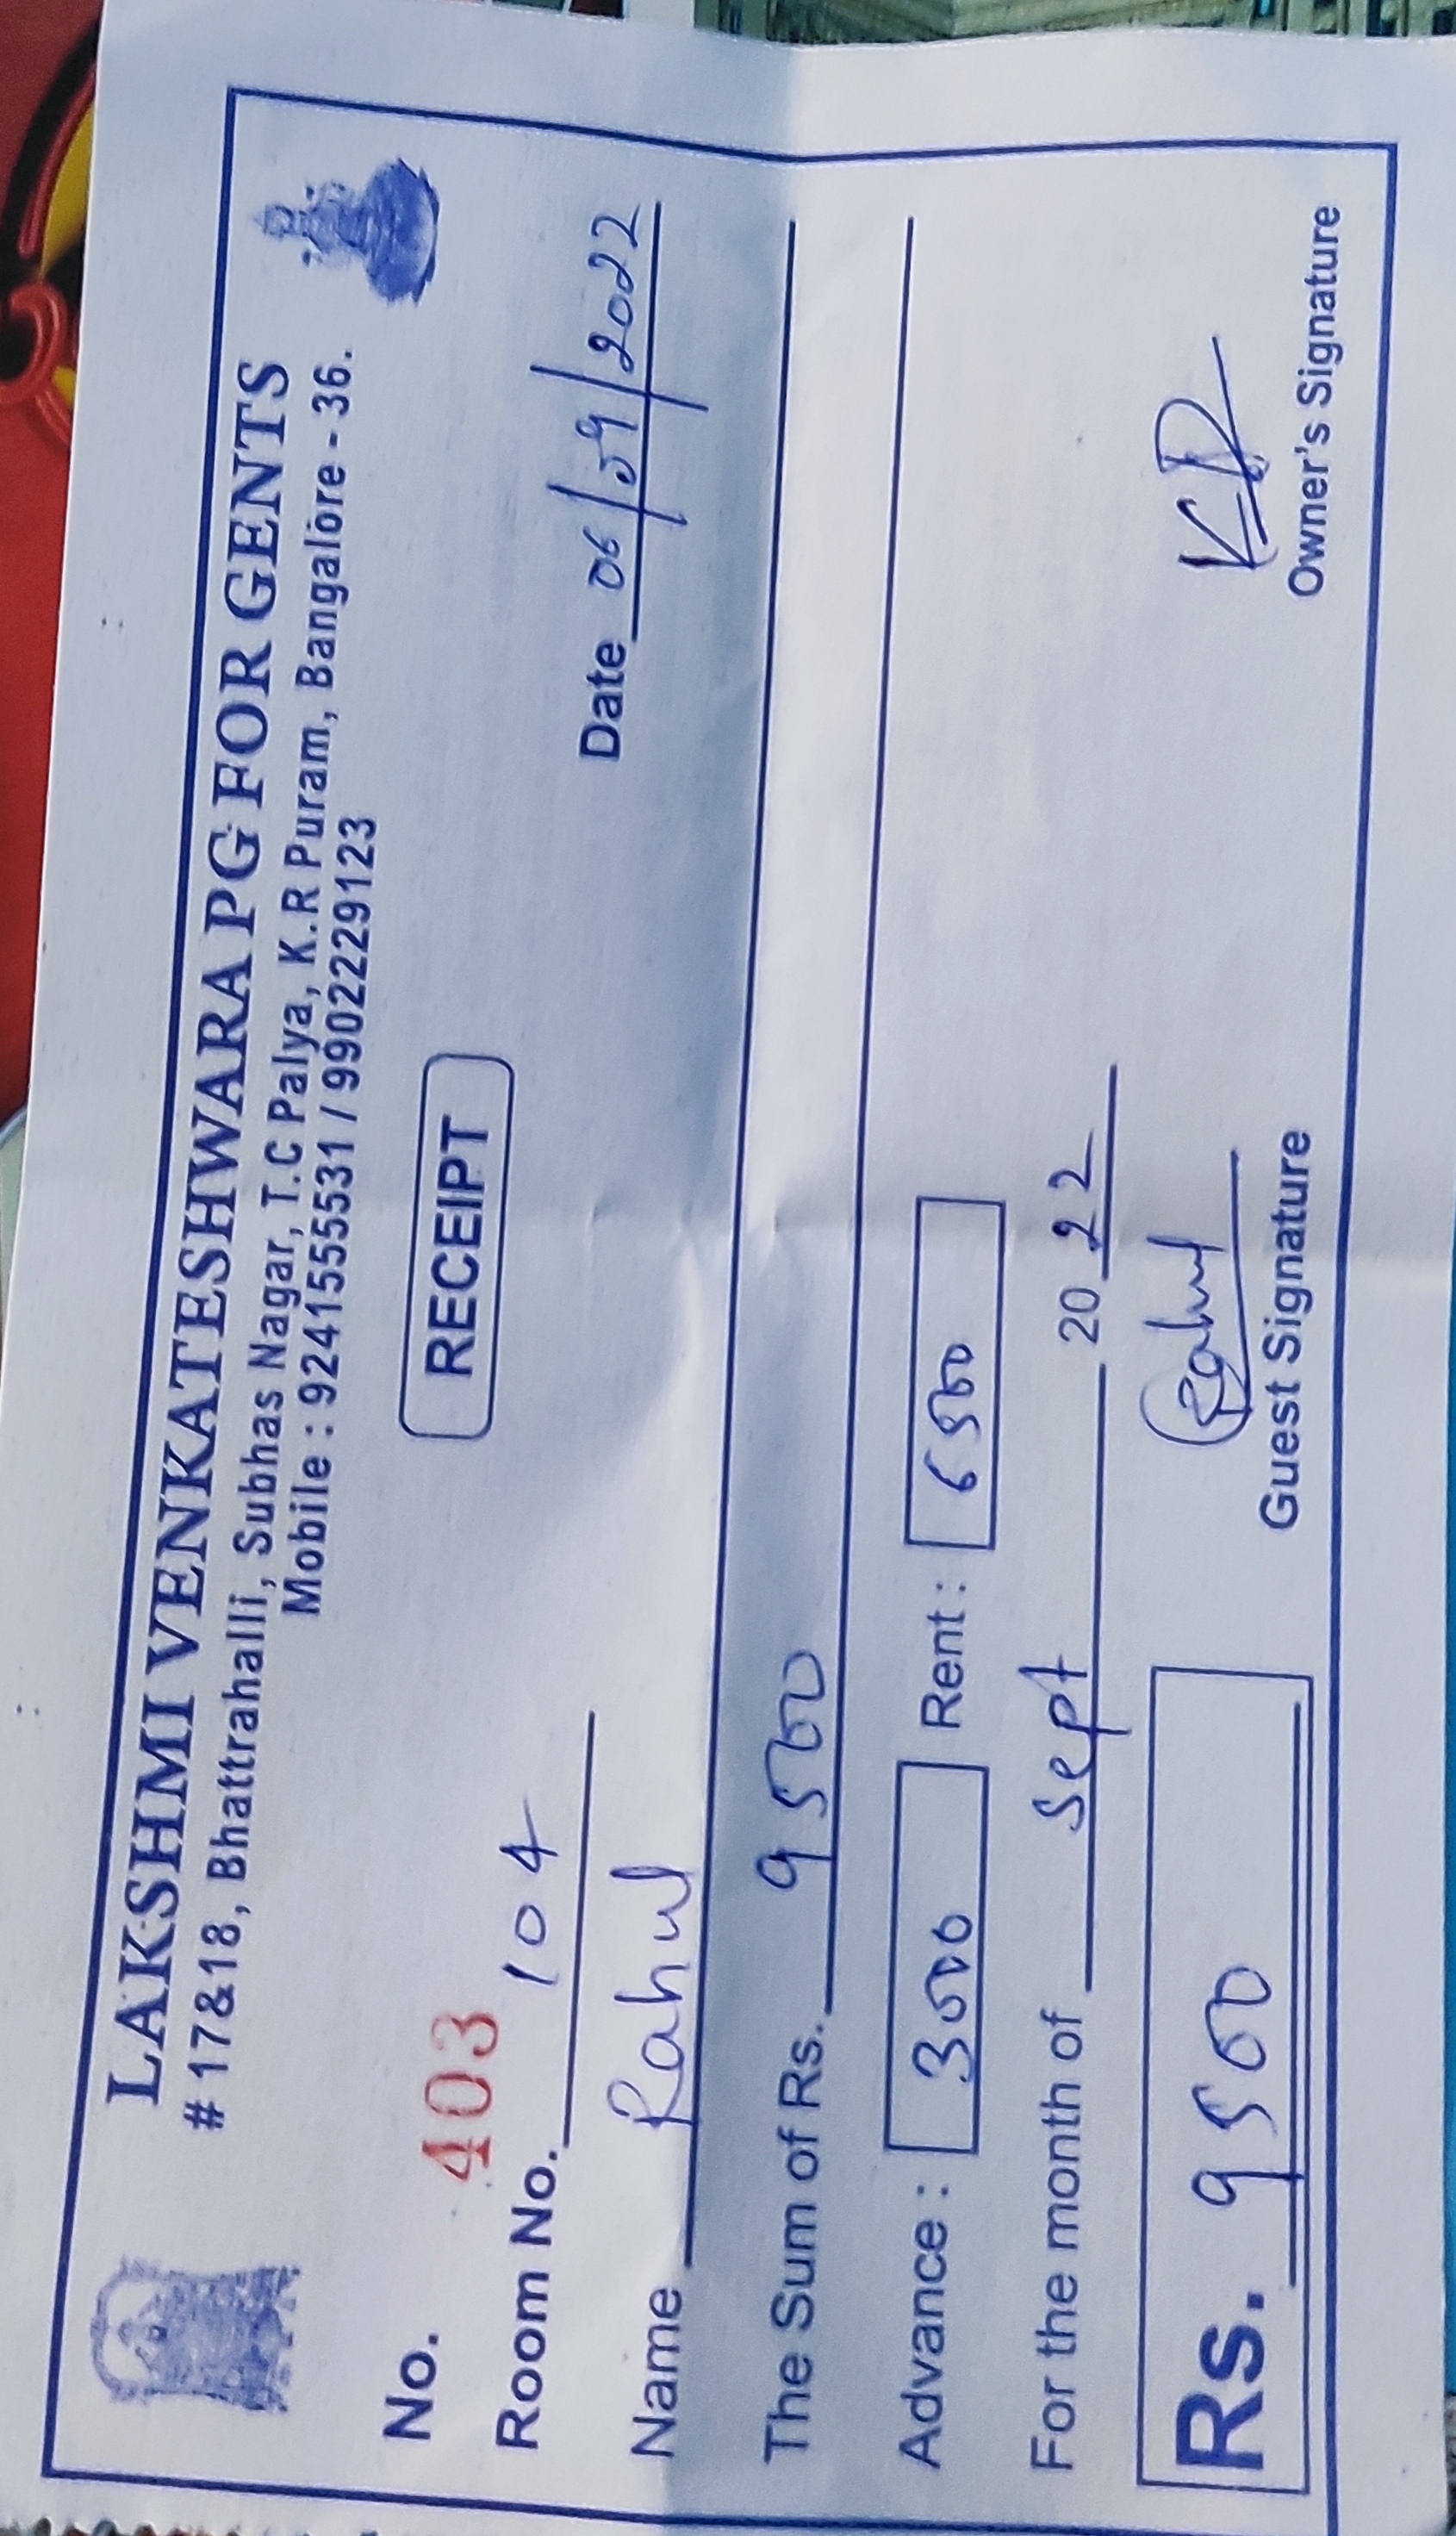 LAKSHMI VENKATESHWARA PG FOR GENTS
# 17&18, Bhattrahalli, Subhas Nagar, T.C Palya, K.R Puram, Bangalore - 36.
Mobile : 9241555531 / 9902229123
RECEIPT
No. 403
Room No. 104
Date 06/09/2022
Name Rahul
The Sum of Rs. 9500
Advance : 3000 Rent : 6500
For the month of Sept 2022
Rs. 9500
Rahul
Guest Signature
KR
Owner's Signature